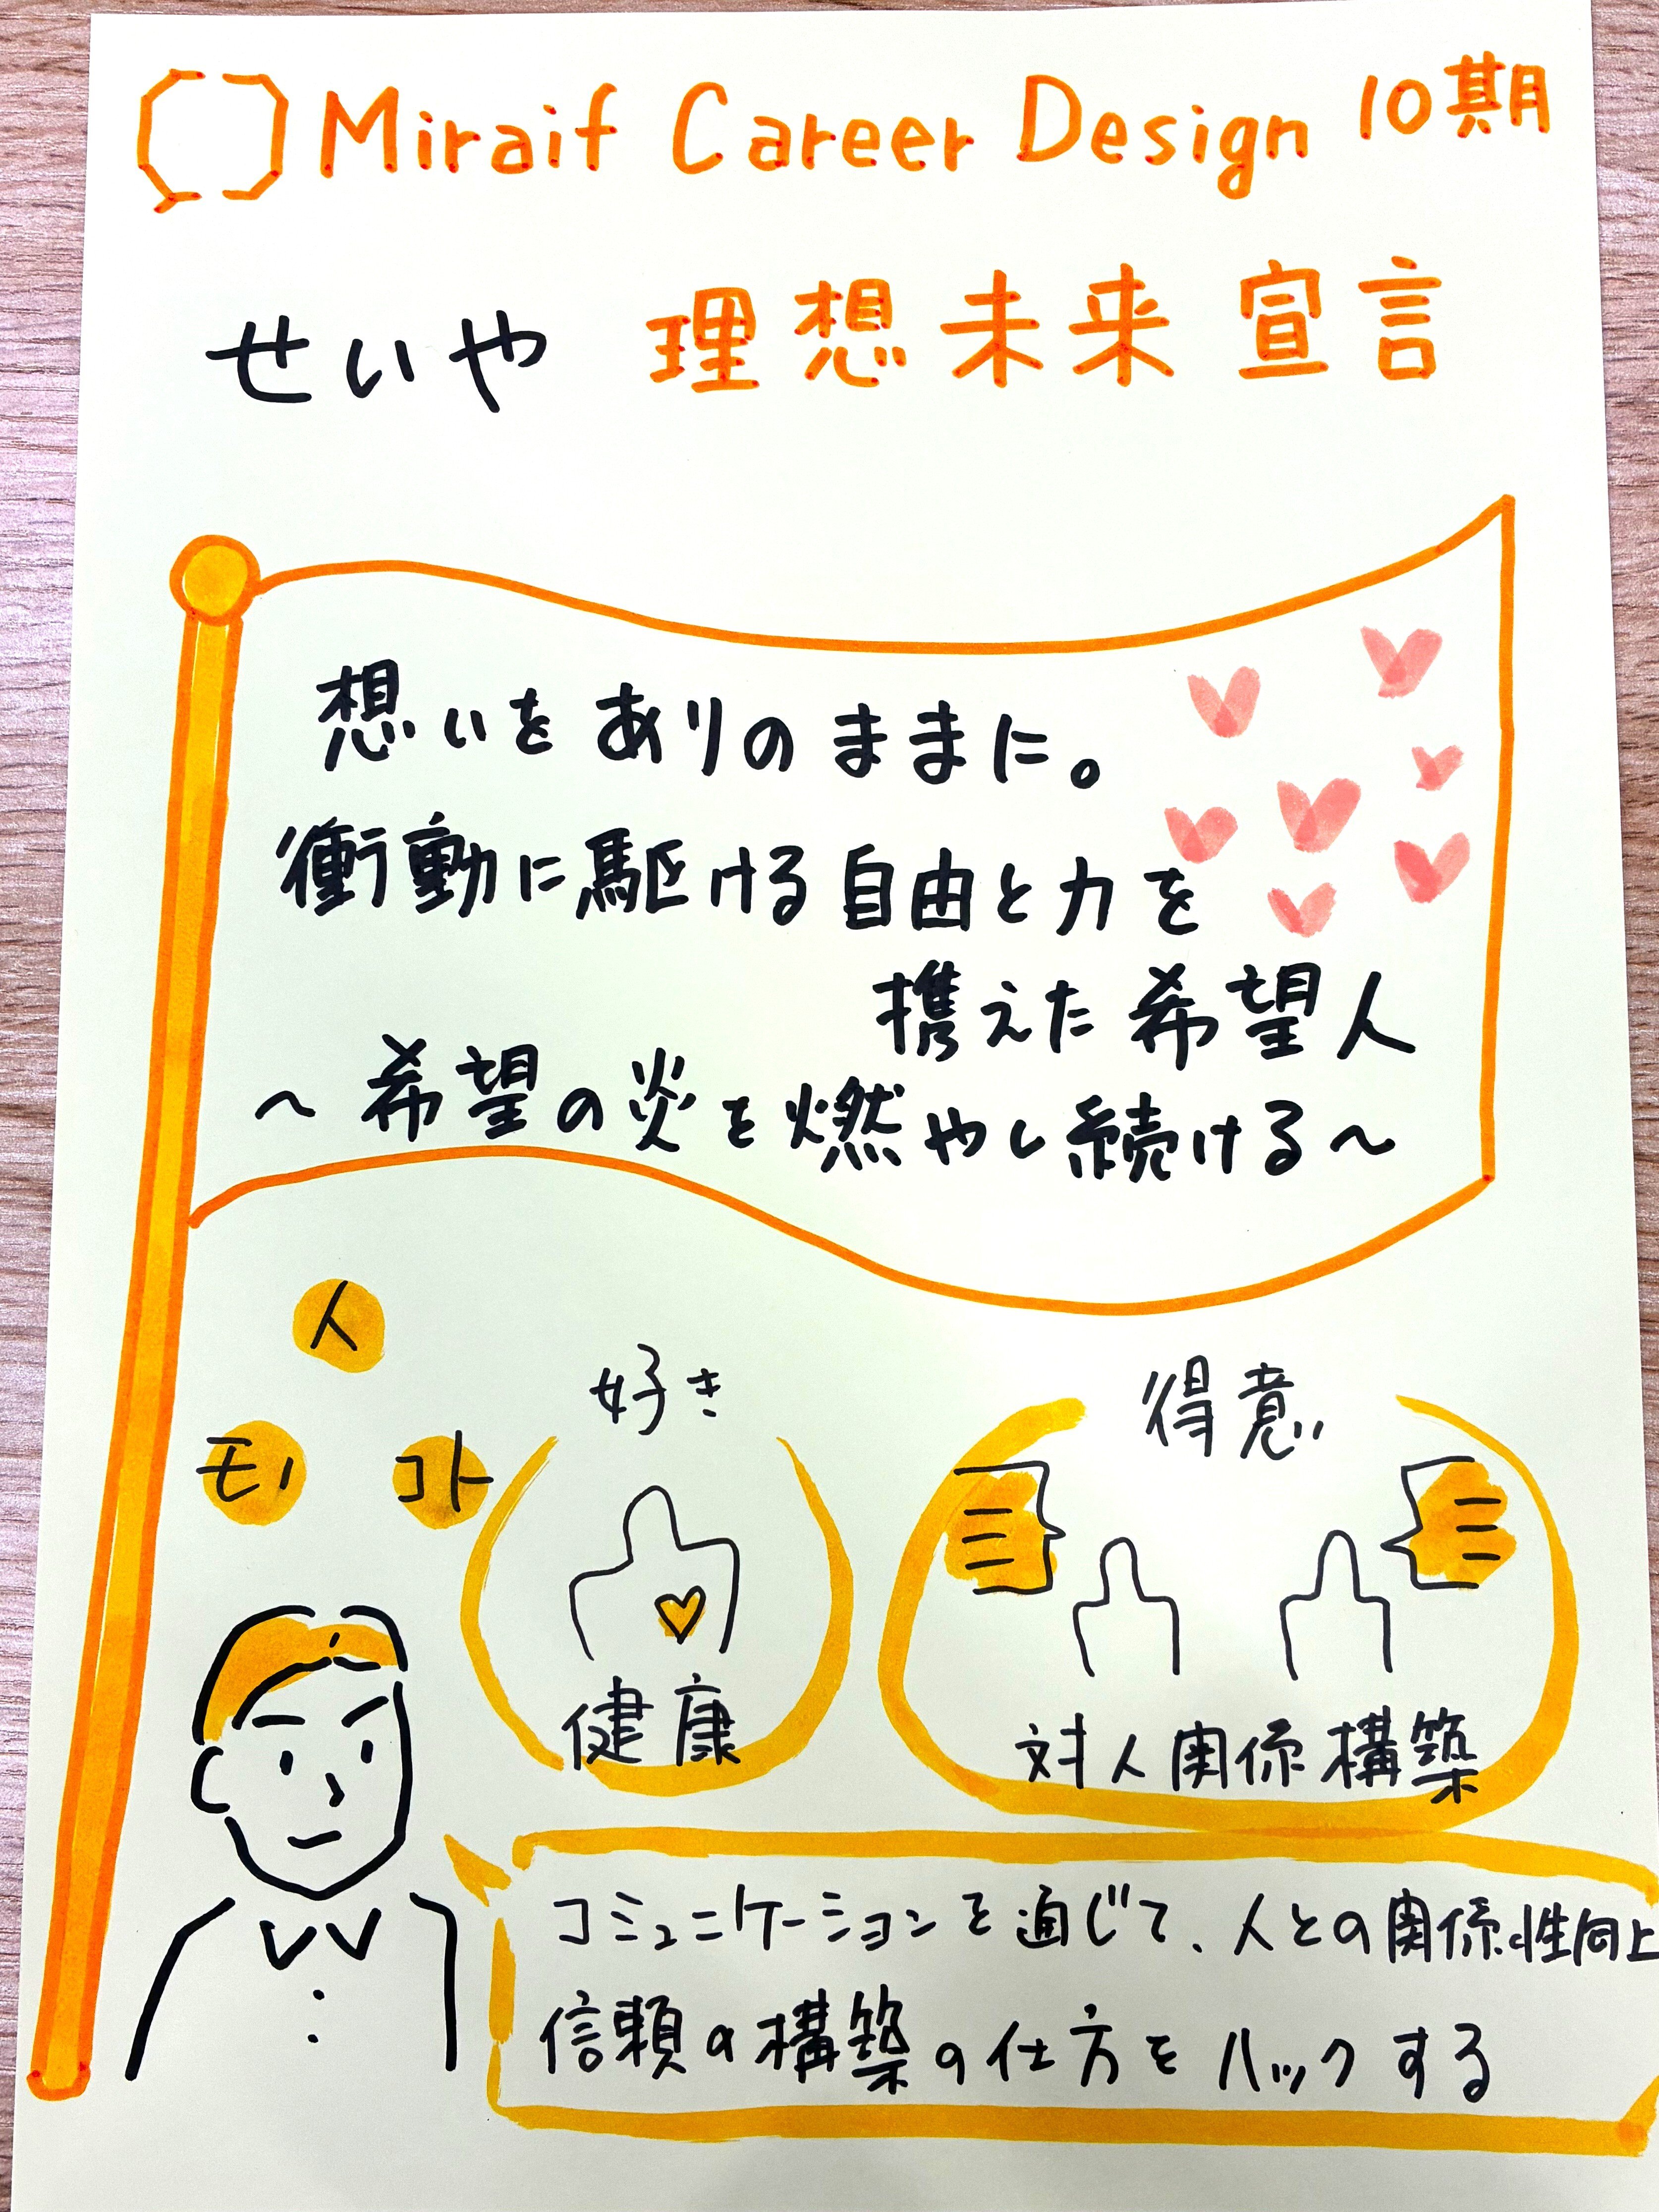 Miraif Career Design 10期
せいや 理想未来宣言
想いをありのままに。
衝動に駆ける自由と力を
携えた希望人
～希望の炎を燃やし続ける～
人
モノ コト
好き
健康
得意
対人関係構築
コミュニケーションを通じて、人との関係性向上
信頼の構築の仕方をハックする